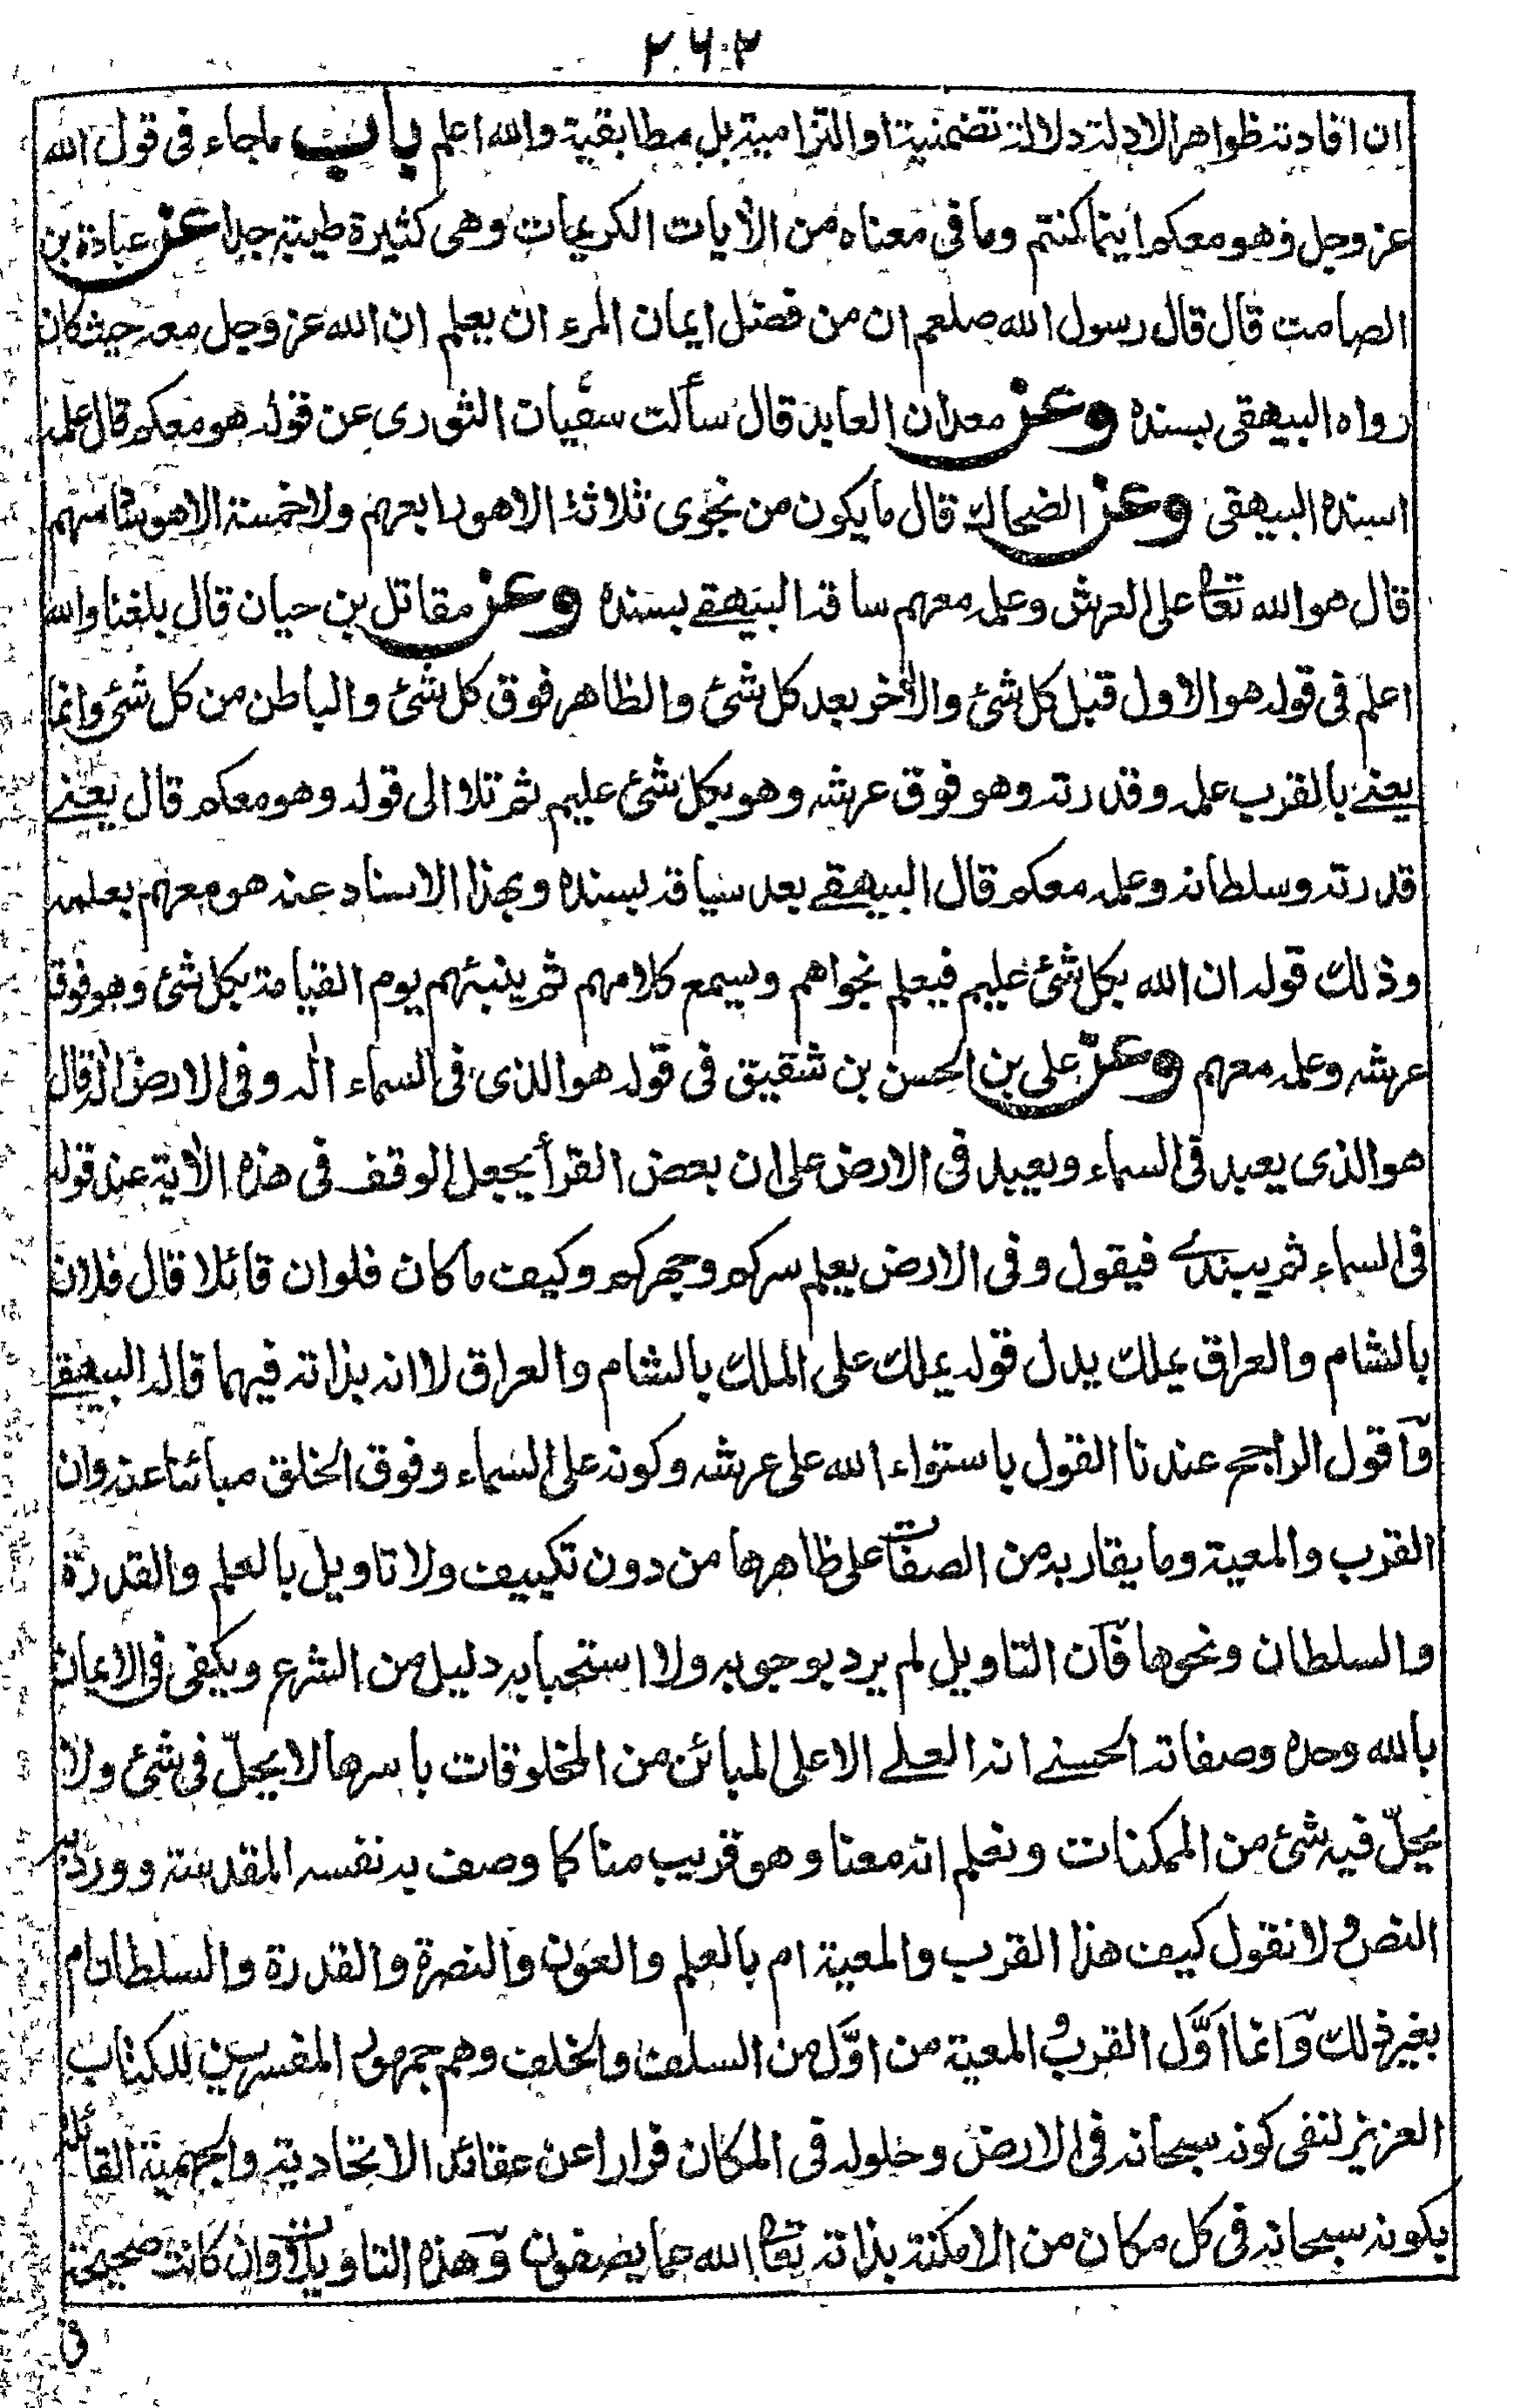 ٢٦٢
ان افادته ظواهر الادلة دلالة تضمنية او التزامية بل مطابقية والله اعلم باب ماجاء فى قول الله
عز وجل وهو معكم اينما كنتم وما فى معناه من الأيات الكريمات وهى كثيرة طيبة جدا عن عبادة بن
الصامت قال قال رسول الله صلعم ان من فضل ايمان المرء ان يعلم ان الله عز وجل معه حيث كان
رواه البيهقى بسنده وعن معدان العابد قال سألت سفيان الثورى عن قوله هو معكم قال علمه
اسنده البيهقى وعن الضحاك قال ما يكون من نجوى ثلاثة الاهو رابعهم ولا خمسة الاهو سادسهم
قال هو الله تعا على العرش وعلمه معهم ساقه البيهقے بسنده وعن مقاتل بن حيان قال بلغنا والله
اعلم فى قوله هو الاول قبل كل شئ والأخر بعد كل شئ والظاهر فوق كل شئ والباطن من كل شئ وانما
يعنے بالقرب علمه وقدرته وهو فوق عرشه وهو بكل شئ عليم ثم تلا الى قوله وهو معكم قال يعنے
قدرته وسلطانه وعلمه معكم قال البيهقے بعد سياقه بسنده وبهذا الاسناد عنه هو معهم بعلمه
وذلك قوله ان الله بكل شئ عليم فيعلم نجواهم ويسمع كلامهم ثم ينبئهم يوم القيامة بكل شئ وهو فوق
عرشه وعلمه معهم وعن على بن الحسن بن شقيق فى قوله هو الذى فى السماء اله وفى الارض اله قال
هو الذى يعبد فى السماء ويعبد فى الارض على ان بعض القرأ يجعل الوقف فى هذه الأية عند قوله
فى السماء ثم يبتدے فيقول وفى الارض يعلم سركم وجهركم وكيف ما كان فلو ان قائلا قال فلان
بالشام والعراق يملك يدل قوله يملك على الملك بالشام والعراق لا انه بذاته فيهما قاله البيهقے
وآقول الراجح عندنا القول باستواء الله على عرشه وكونه على السماء وفوق الخلق مبائنا عنه وان
القرب والمعية وما يقاربه من الصفات على ظاهرها من دون تكييف ولا تاويل بالعلم والقدرة
والسلطان ونحوها فآن التاويل لم يرد بوجوبه ولا استحبابه دليل من الشرع ويكفى فى الايمان
بالله وحده وصفاته الحسنے انه العلے الاعلى المبائن من المخلوقات باسرها لا يحلّ فى شئ ولا
يحلّ فيه شئ من الممكنات ونعلم انه معنا وهو قريب منا كما وصف به نفسه المقدسة وورد به
النص ولا نقول كيف هذا القرب والمعية ام بالعلم والعون والنصرة والقدرة والسلطان ام
بغير ذلك وآنما اَوَّل القرب والمعية من اوَّل من السلف والخلف وهم جمهور المفسرين للكتاب
العزيز لنفى كونه سبحانه فى الارض وحلوله فى المكان فرارا عن عقائد الاتحادية والجهمية القائلة
بكونه سبحانه فى كل مكان من الامكنة بذاته تعا الله عما يصفون وهذه التاويلات وان كانت صحيحة